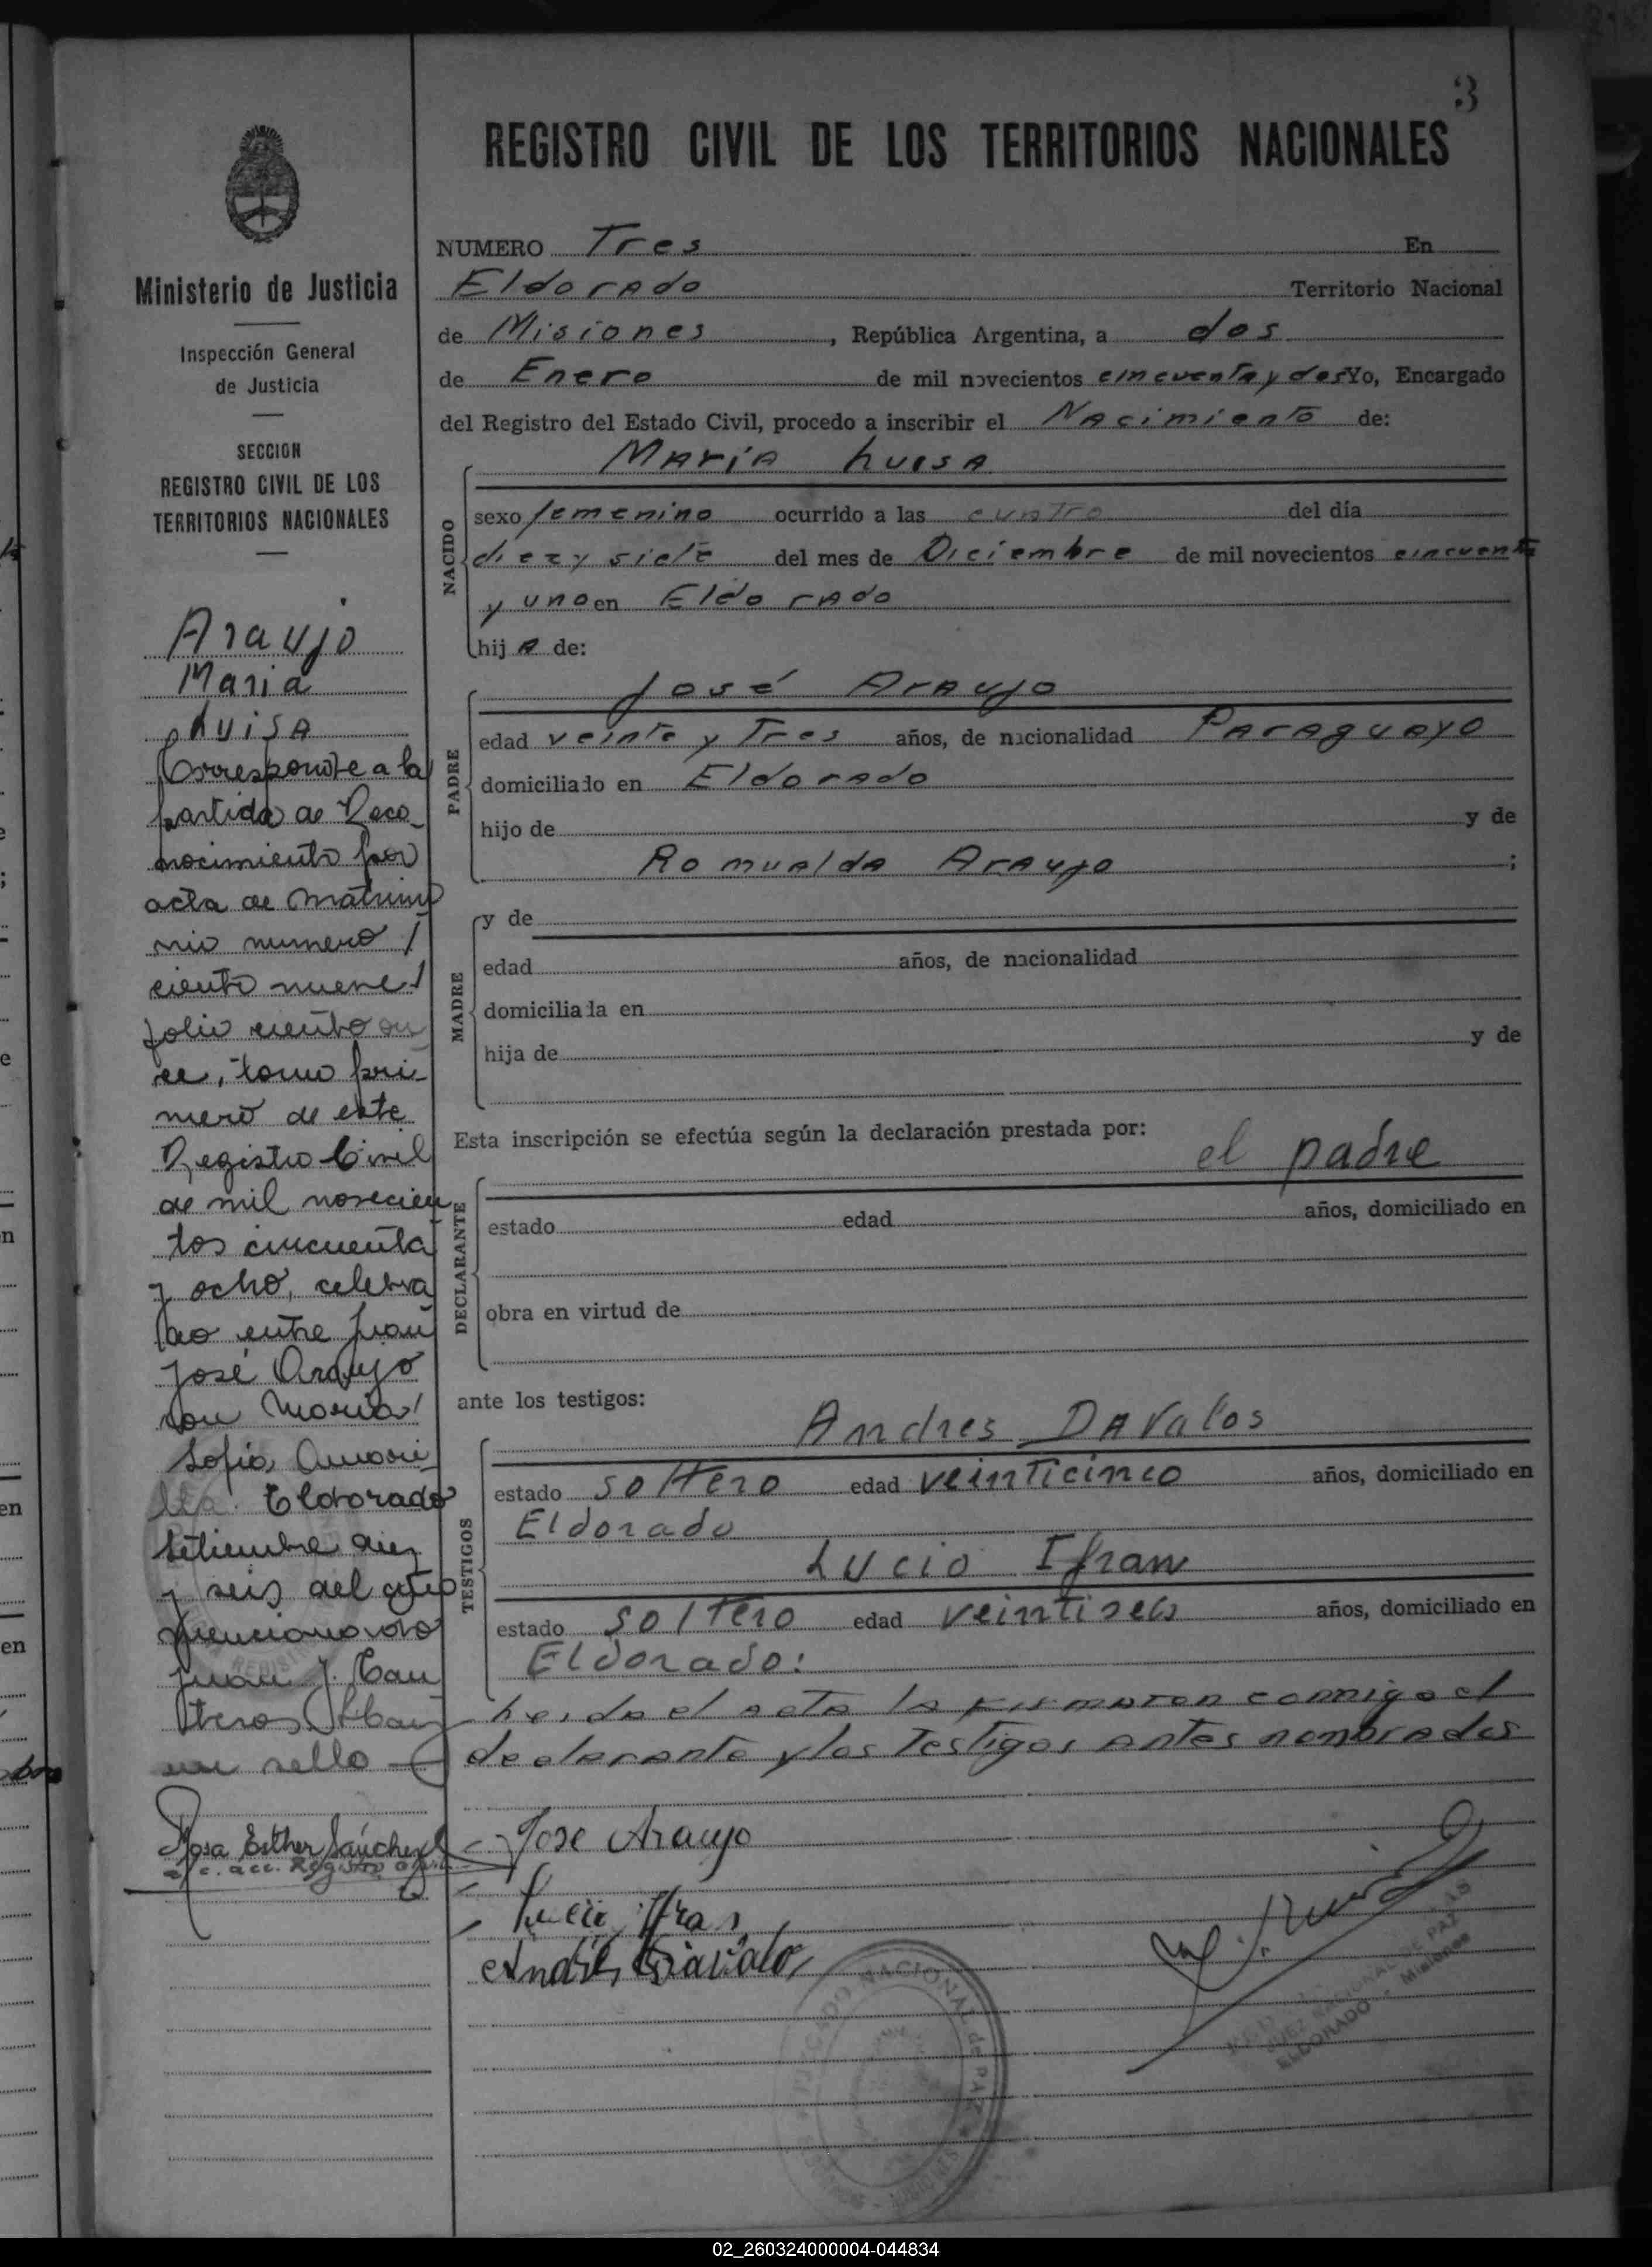 3
REGISTRO CIVIL DE LOS TERRITORIOS NACIONALES
Ministerio de Justicia
Inspección General
de Justicia
SECCION
REGISTRO CIVIL DE LOS
TERRITORIOS NACIONALES
Araujo
Maria
Luisa
Corresponde a la
partida de Reco-
nocimiento por
acta de matrimo
nio numero /
ciento nueve/
folio ciento on
ce, tomo pri-
mero de este
Registro Civil
de mil novecien
tos cincuenta
y ocho, celebra
do entre Juan
José Araujo
con Maria/
Sofia Amari-
lla. Eldorado
setiembre diez
y seis del año
mencionado
Juan J. Can
teros
un sello
Rosa Esther Sánchez
e/c. acc. Registro
NUMERO Tres En
Eldorado Territorio Nacional
de Misiones, República Argentina, a dos
de Enero de mil novecientos cincuenta y dos Yo, Encargado
del Registro del Estado Civil, procedo a inscribir el Nacimiento de:
Maria Luisa
NACIDO
sexo femenino ocurrido a las cuatro del día
diez y siete del mes de Diciembre de mil novecientos cincuenta
y uno en Eldorado
hija de:
José Araujo
PADRE
edad veinte y Tres años, de nacionalidad Paraguayo
domiciliado en Eldorado
hijo de y de
Romualda Araujo ;
MADRE
y de
edad años, de nacionalidad
domiciliada en
hija de y de
Esta inscripción se efectúa según la declaración prestada por:
el padre
DECLARANTE
estado edad años, domiciliado en
obra en virtud de
ante los testigos:
Andres Davalos
TESTIGOS
estado soltero edad veinticinco años, domiciliado en
Eldorado
Lucio Ifran
estado soltero edad veintiseis años, domiciliado en
Eldorado:
Leida el acta la firmaron conmigo el
declarante y los Testigos antes nombrados
Jose Araujo
Lucio Ifran
Andrés Davalos
JUZGADO NACIONAL de PAZ
MISIONES
JUEZ NACIONAL DE PAZ
ELDORADO - Misiones
02_260324000004-044834